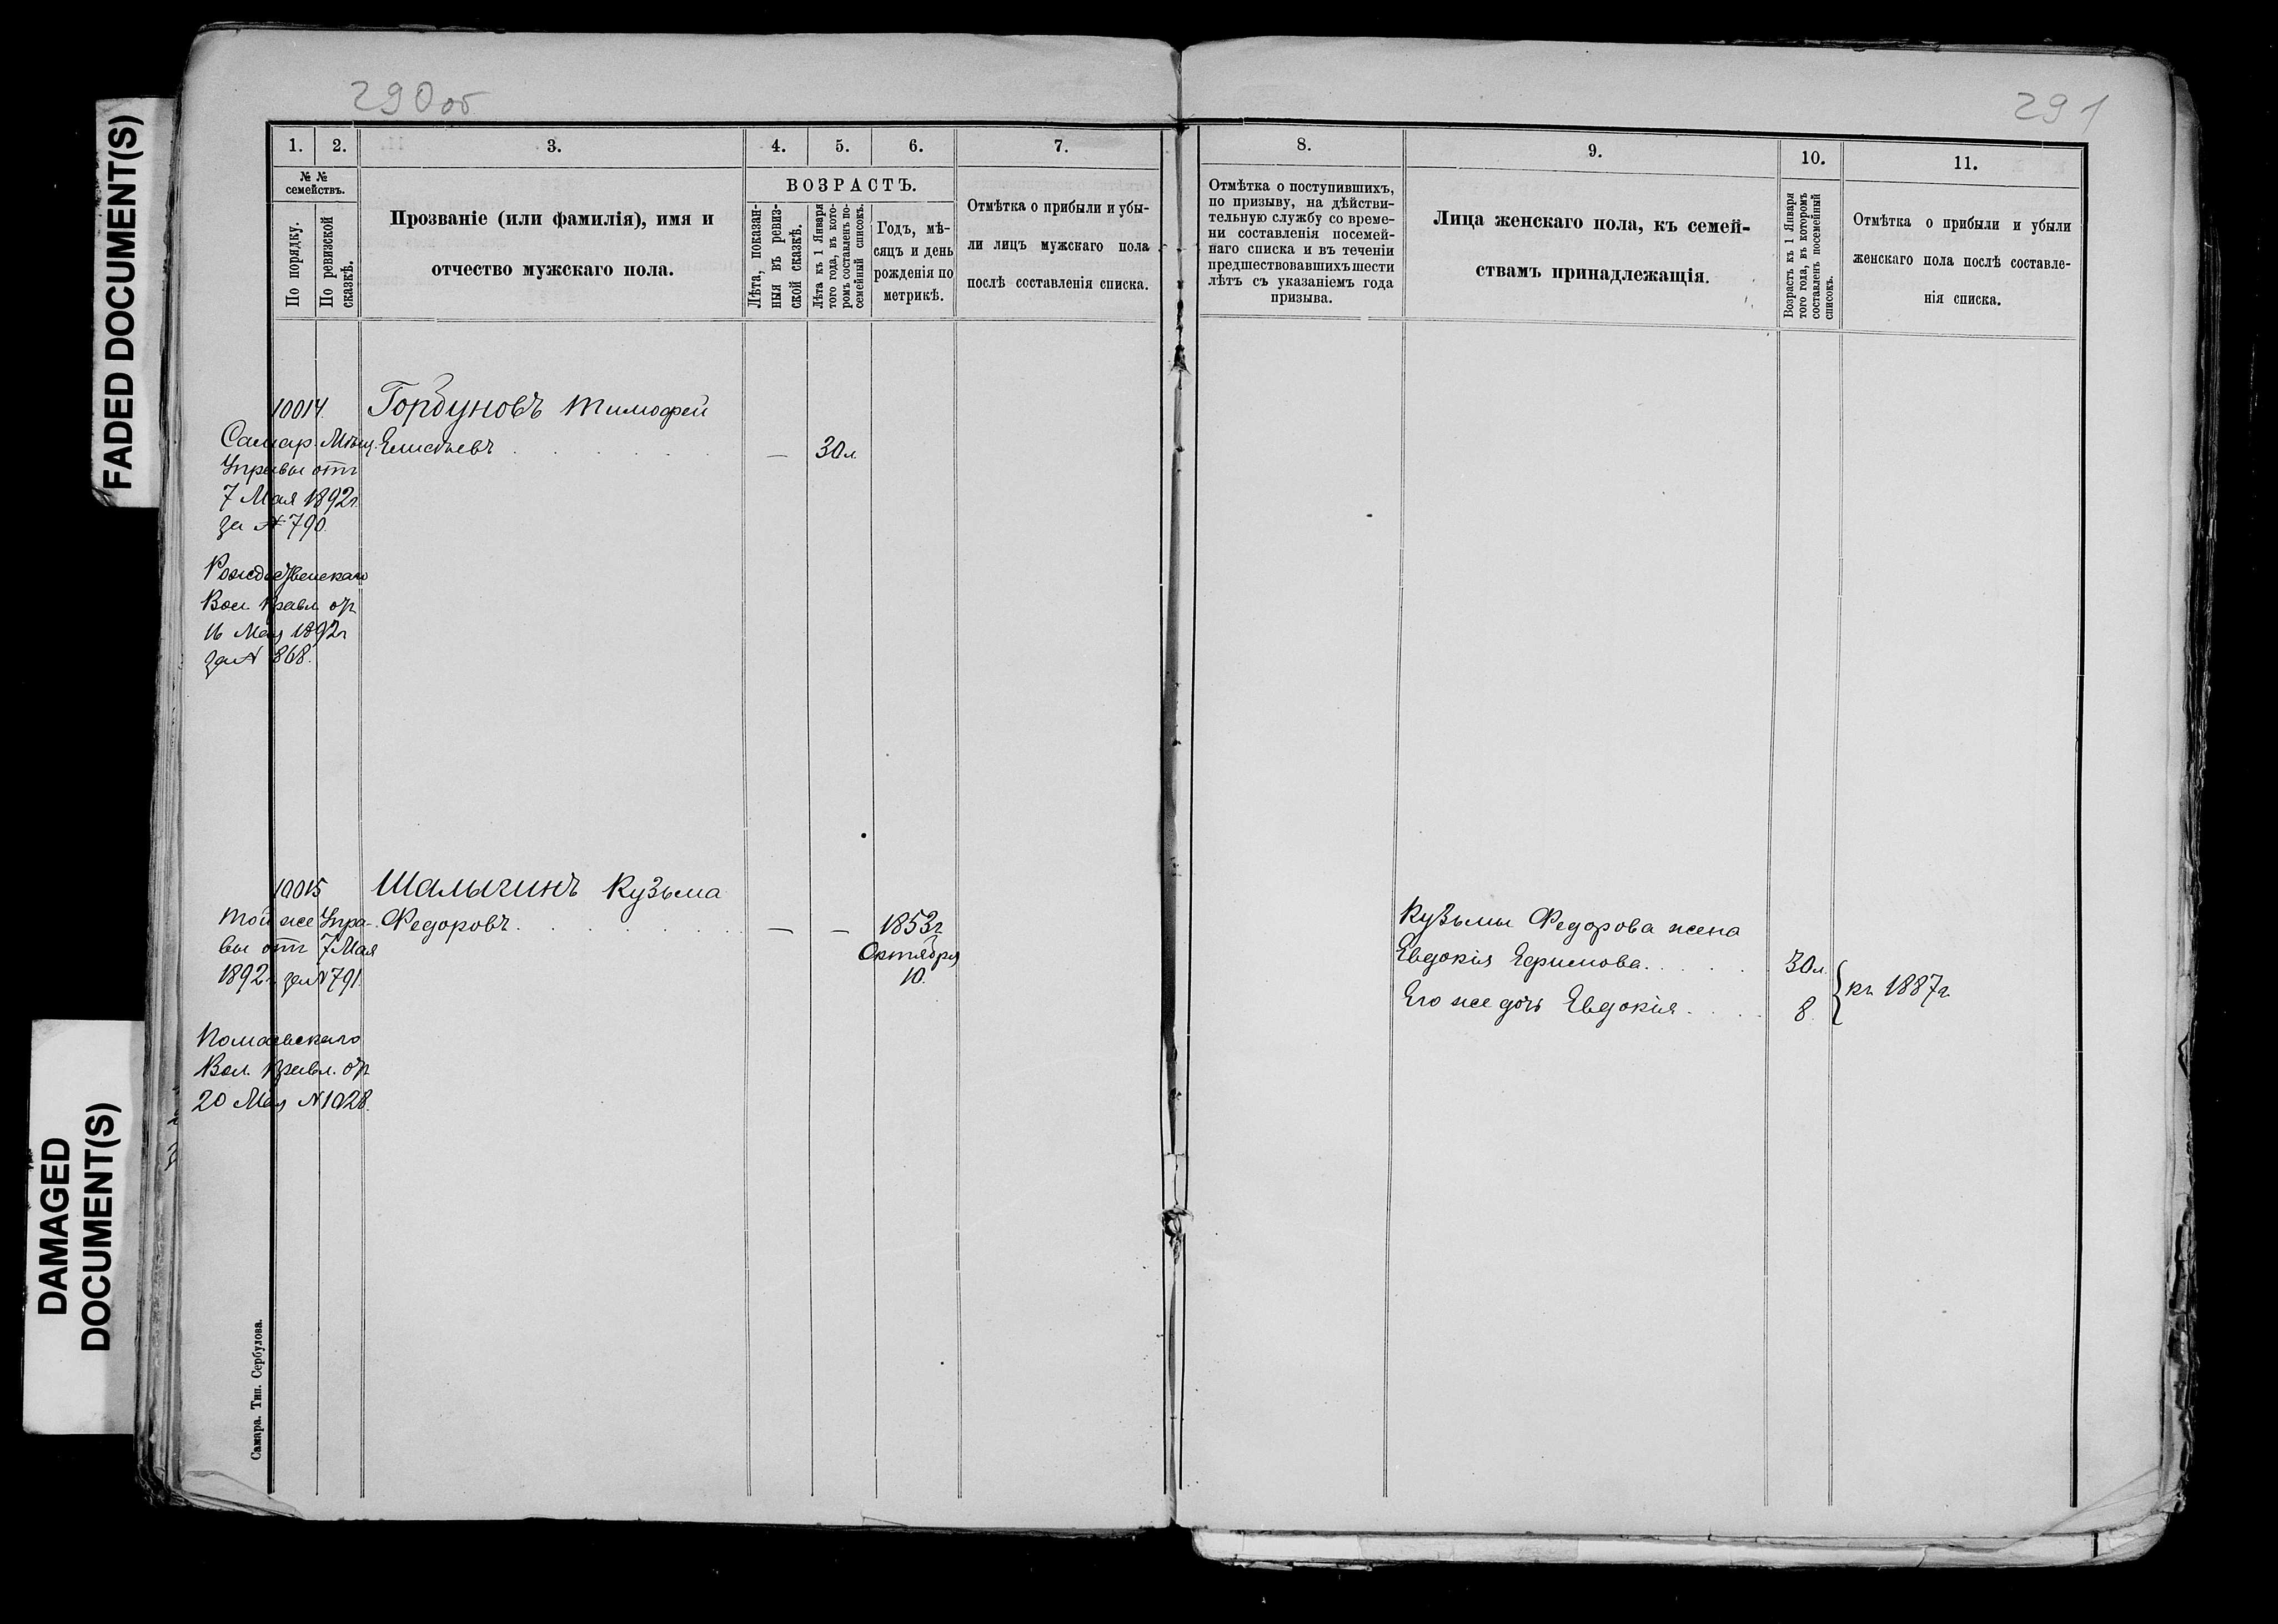 FADED DOCUMENT(S)
DAMAGED
DOCUMENT(S)
290об
1. 2. 3. 4. 5. 6. 7.
№ №
семействъ.
По порядку.
По ревизской
сказкѣ.
Прозваніе (или фамилія), имя и
отчество мужскаго пола.
ВОЗРАСТЪ.
Лѣта, показан-
ныя въ ревиз-
ской сказкѣ.
Лѣта къ 1 Января
того года, въ кото-
ромъ составленъ по-
семейный списокъ.
Годъ, мѣ-
сяцъ и день
рожденія по
метрикѣ.
Отмѣтка о прибыли и убы-
ли лицъ мужскаго пола
послѣ составленія списка.
10014. Горбуновъ Тимофей
Самар. Мѣщ. Елисѣевъ — 30 л.
Управы отъ
7 Мая 1892 г.
за № 790.
Рождественскаго
Вол. Правл. от
16 Мая 1892 г
за № 868.
10015 Шалыгинъ Кузьма
Той же Упра- Федоровъ — — 1853 г.
вы отъ 7 Мая Октября
1892 г. за № 791. 10.
Вол. Правл. от
20 Мая № 1028.
Самара. Тип. Сербулова.
291
8. 9. 10. 11.
Отмѣтка о поступившихъ,
по призыву, на дѣйстви-
тельную службу со време-
ни составленія посемей-
наго списка и въ теченіи
предшествовавшихъ шести
лѣтъ съ указаніемъ года
призыва.
Лица женскаго пола, къ семей-
ствамъ принадлежащія.
Возрастъ къ 1 Января
того года, въ которомъ
составленъ посемейный
списокъ.
Отмѣтка о прибыли и убыли
женскаго пола послѣ составле-
нія списка.
Кузьмы Федорова жена
Евдокія Ефимова 30 л.
къ 1887 г.
Его же дочь Евдокія 8.